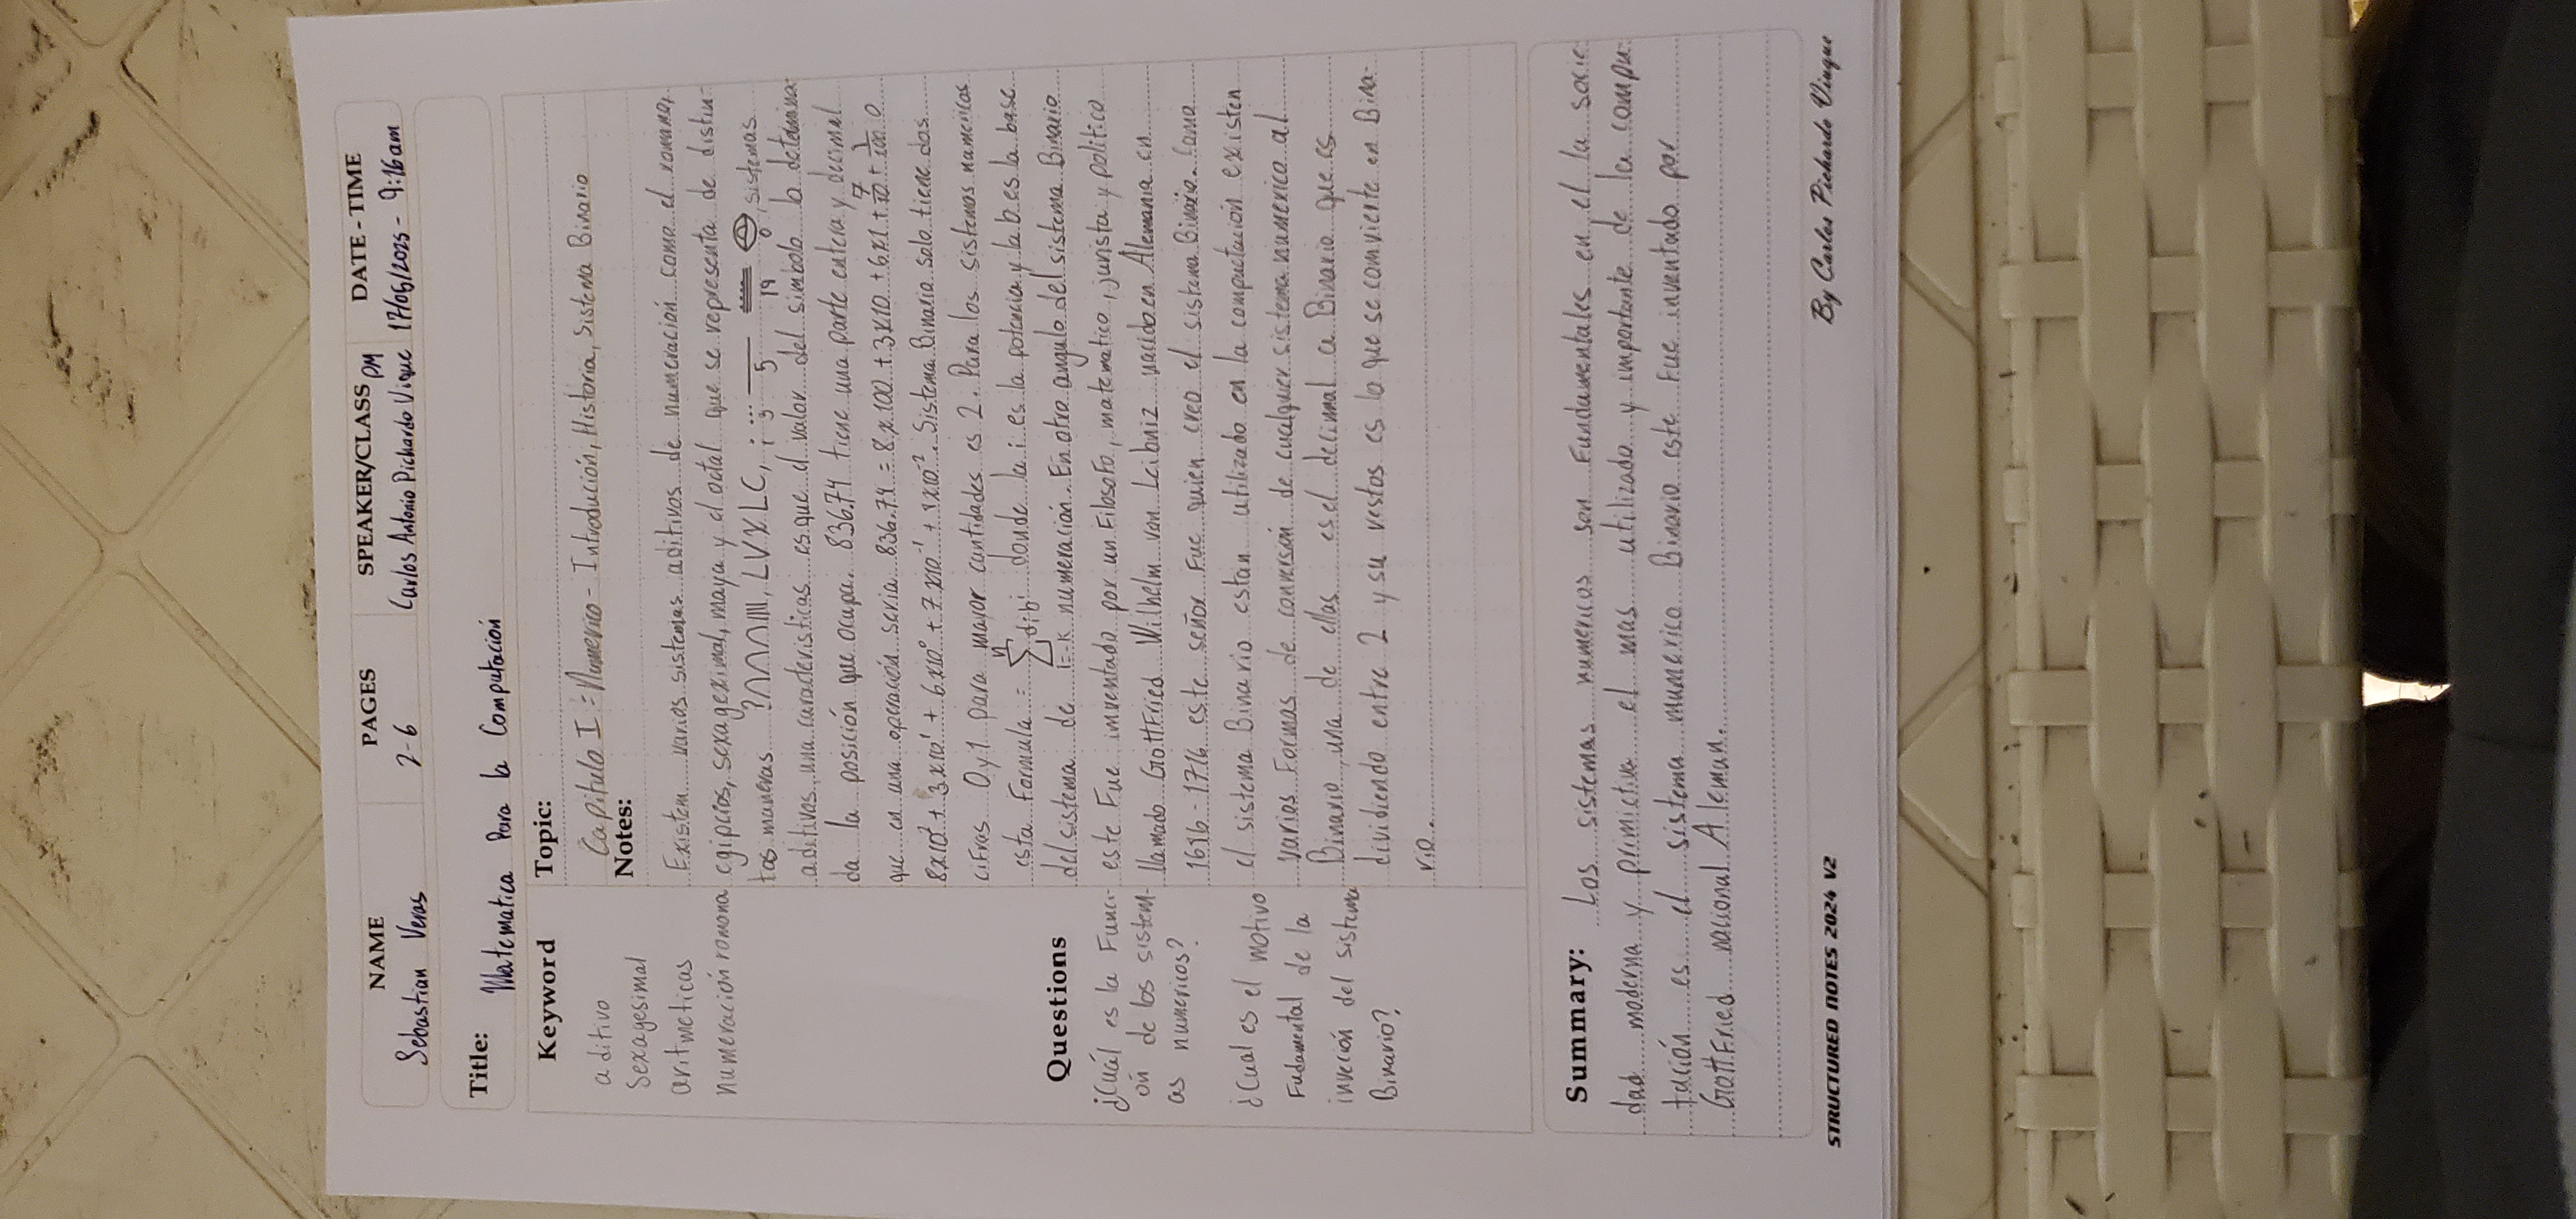 NAME PAGES SPEAKER/CLASS DATE - TIME
Sebastian Veras 2-6 Carlos Antonio Pichardo Vique PM 17/05/2025 - 9:16am
Title: Matematica Para la Computación
Keyword
aditivo
Sexagesimal
aritmeticas
numeración romana
Topic:
Capitulo I = Numerico - Introdución, Historia, Sistema Binario
Notes:
Existem varios sistemas aditivos de numeración como el romano,
egipcios, sexageximal, maya y el octal que se representa de distin-
tos maneras ?∩∩∩IIII, LVXLC, 5 19 0, sistemas
aditivos, una caracteristicas es que el valor del simbolo lo determina-
da la posición que ocupa. 836.74 tiene una parte entera y decimal
que en una operación seria 836.74 = 8x100 + 3x10 + 6x1 + 7/10 + 1/100 o
8x10² + 3x10¹ + 6x10⁰ + 7x10⁻¹ + 1x10⁻². Sistema Binario solo tiene dos
ciFras 0y1 para mayor cantidades es 2. Para los sistemas numericos
esta Formula = n∑i=-k dibⁱ donde la i es la potencia y la b es la base
del sistema de numeración. En otro angulo del sistema Binario
este Fue inventado por un FilosoFo, matematico, jurista y politico
llamado GottFried Wilhelm von Leibniz nacido en Alemania en
1646-1716 este señor Fue quien creo el sistema Binario. Como
el sistema Binario estan utilizado en la compuctación existen
varios Formas de conversión de cualquier sistema numerico al
Binario, una de ellas es el decimal a Binario que es
dividiendo entre 2 y su restos es lo que se comvierte en Bina-
rio.
Questions
¿Cuál es la Funci-
on de los sistem-
as numericos?
¿Cual es el motivo
Fudamental de la
inveción del sistema
Binario?
Summary: Los sistemas numericos son Fundamentales en el la socie-
dad moderna y primictiva el mas utilizado y importante de la compu-
tación es el sistema numerico Binario este Fue inventado por
GottFried nacional Aleman.
STRUCTURED NOTES 2024 V2
By Carlos Pichardo Viuque